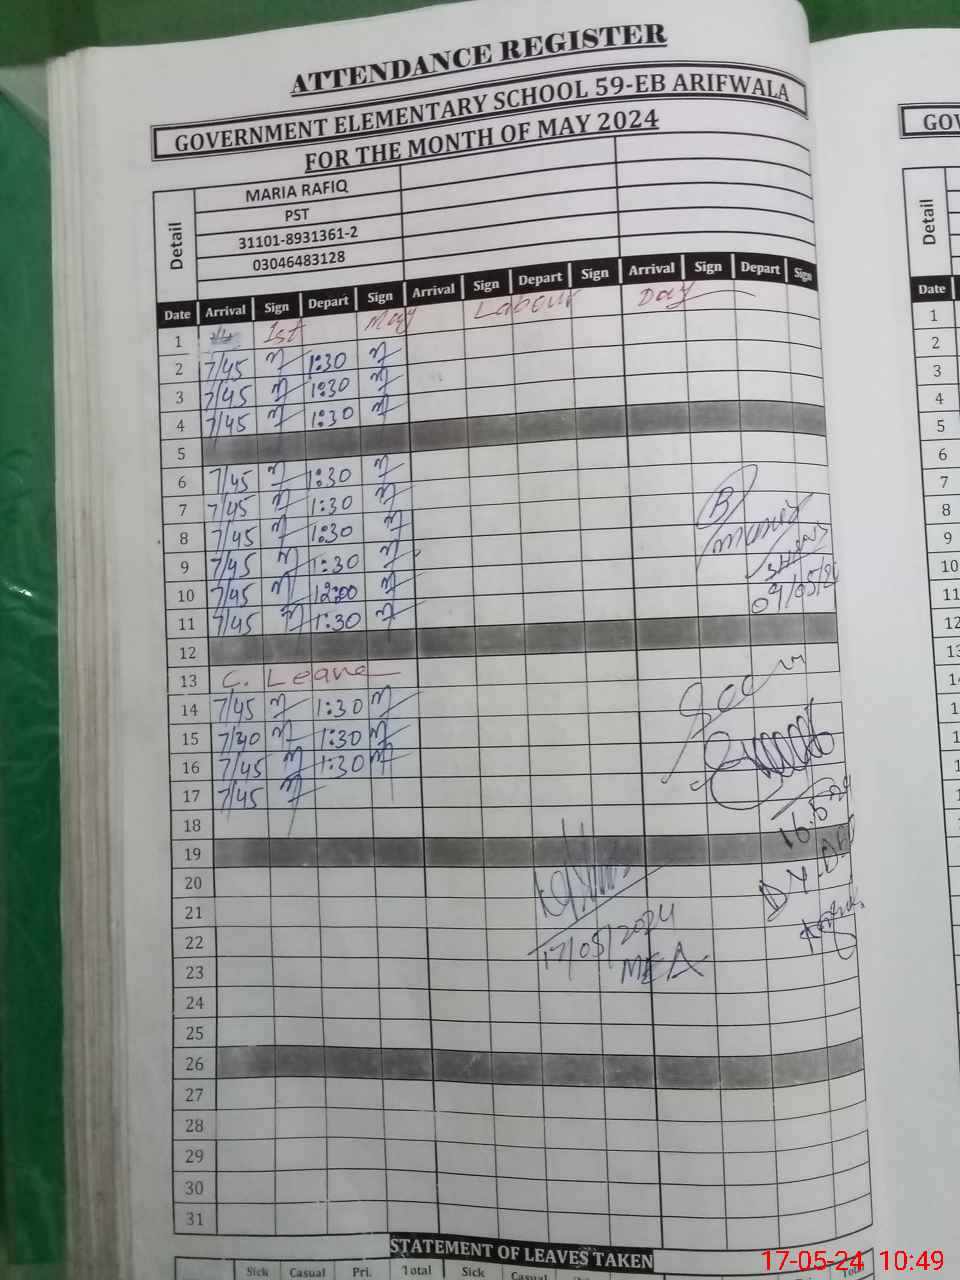 ATTENDANCE REGISTER
GOVERNMENT ELEMENTARY SCHOOL 59-EB ARIFWALA
FOR THE MONTH OF MAY 2024
Detail
MARIA RAFIQ
PST
31101-8931361-2
03046483128
Date Arrival Sign Depart Sign Arrival Sign Depart Sign Arrival Sign Depart Sign
1 1st May Labour Day
2 7/45 1:30
3 7/45 1:30
4 7/45 1:30
5
6 7/45 1:30
7 7/45 1:30
8 7/45 1:30
9 7/45 1:30
10 7/45 12:00
11 7/45 1:30
12
13 C. Leave
14 7/45 1:30
15 7/40 1:30
16 7/45 1:30
17 7/45
18
19
20
21
22
23
24
25
26
27
28
29
30
31
09/05/24
16.5.24
17/05/2024
MEA
STATEMENT OF LEAVES TAKEN
Sick Casual Pri. Total Sick Casual
GOV
Detail
Date
1
2
3
4
5
6
7
8
9
10
11
12
17-05-24 10:49